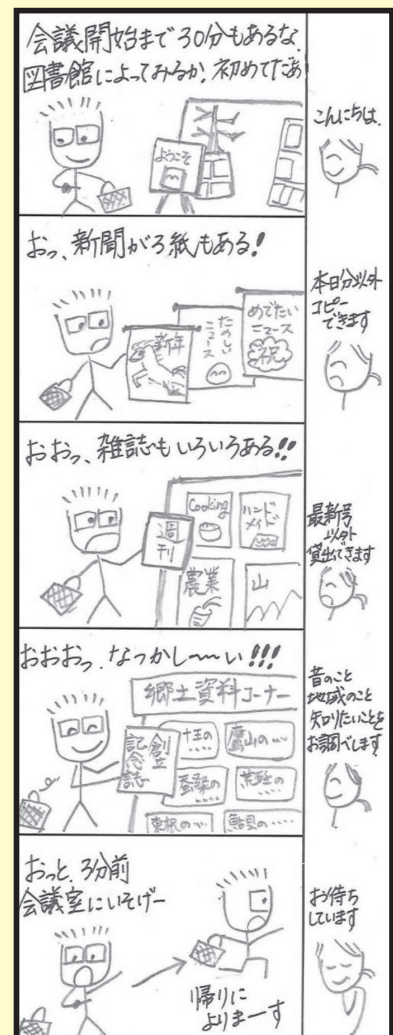 会議開始まで30分もあるな.
図書館によってみるか.初めてだあ
ようこそ
こんにちは.
おっ、新聞が3紙もある!
新年
たのしい
ニュース
めでたい
ニュース
祝
本日分以外
コピー
できます
おおっ、雑誌もいろいろある!!
週刊
Cooking
ハンド
メイド
農業
山
最新号
以外
貸出できます
おおおっ、なつかし〜〜い!!!
郷土資料コーナー
創立
記念誌
十王の……
鷹山の……
蚕桑の……
荒砥の……
東根の……
鮎貝の……
昔のこと
地域のこと
知りたいことを
お調べします
おっと、3分前
会議室にいそげー
帰りに
よりまーす
お待ち
しています